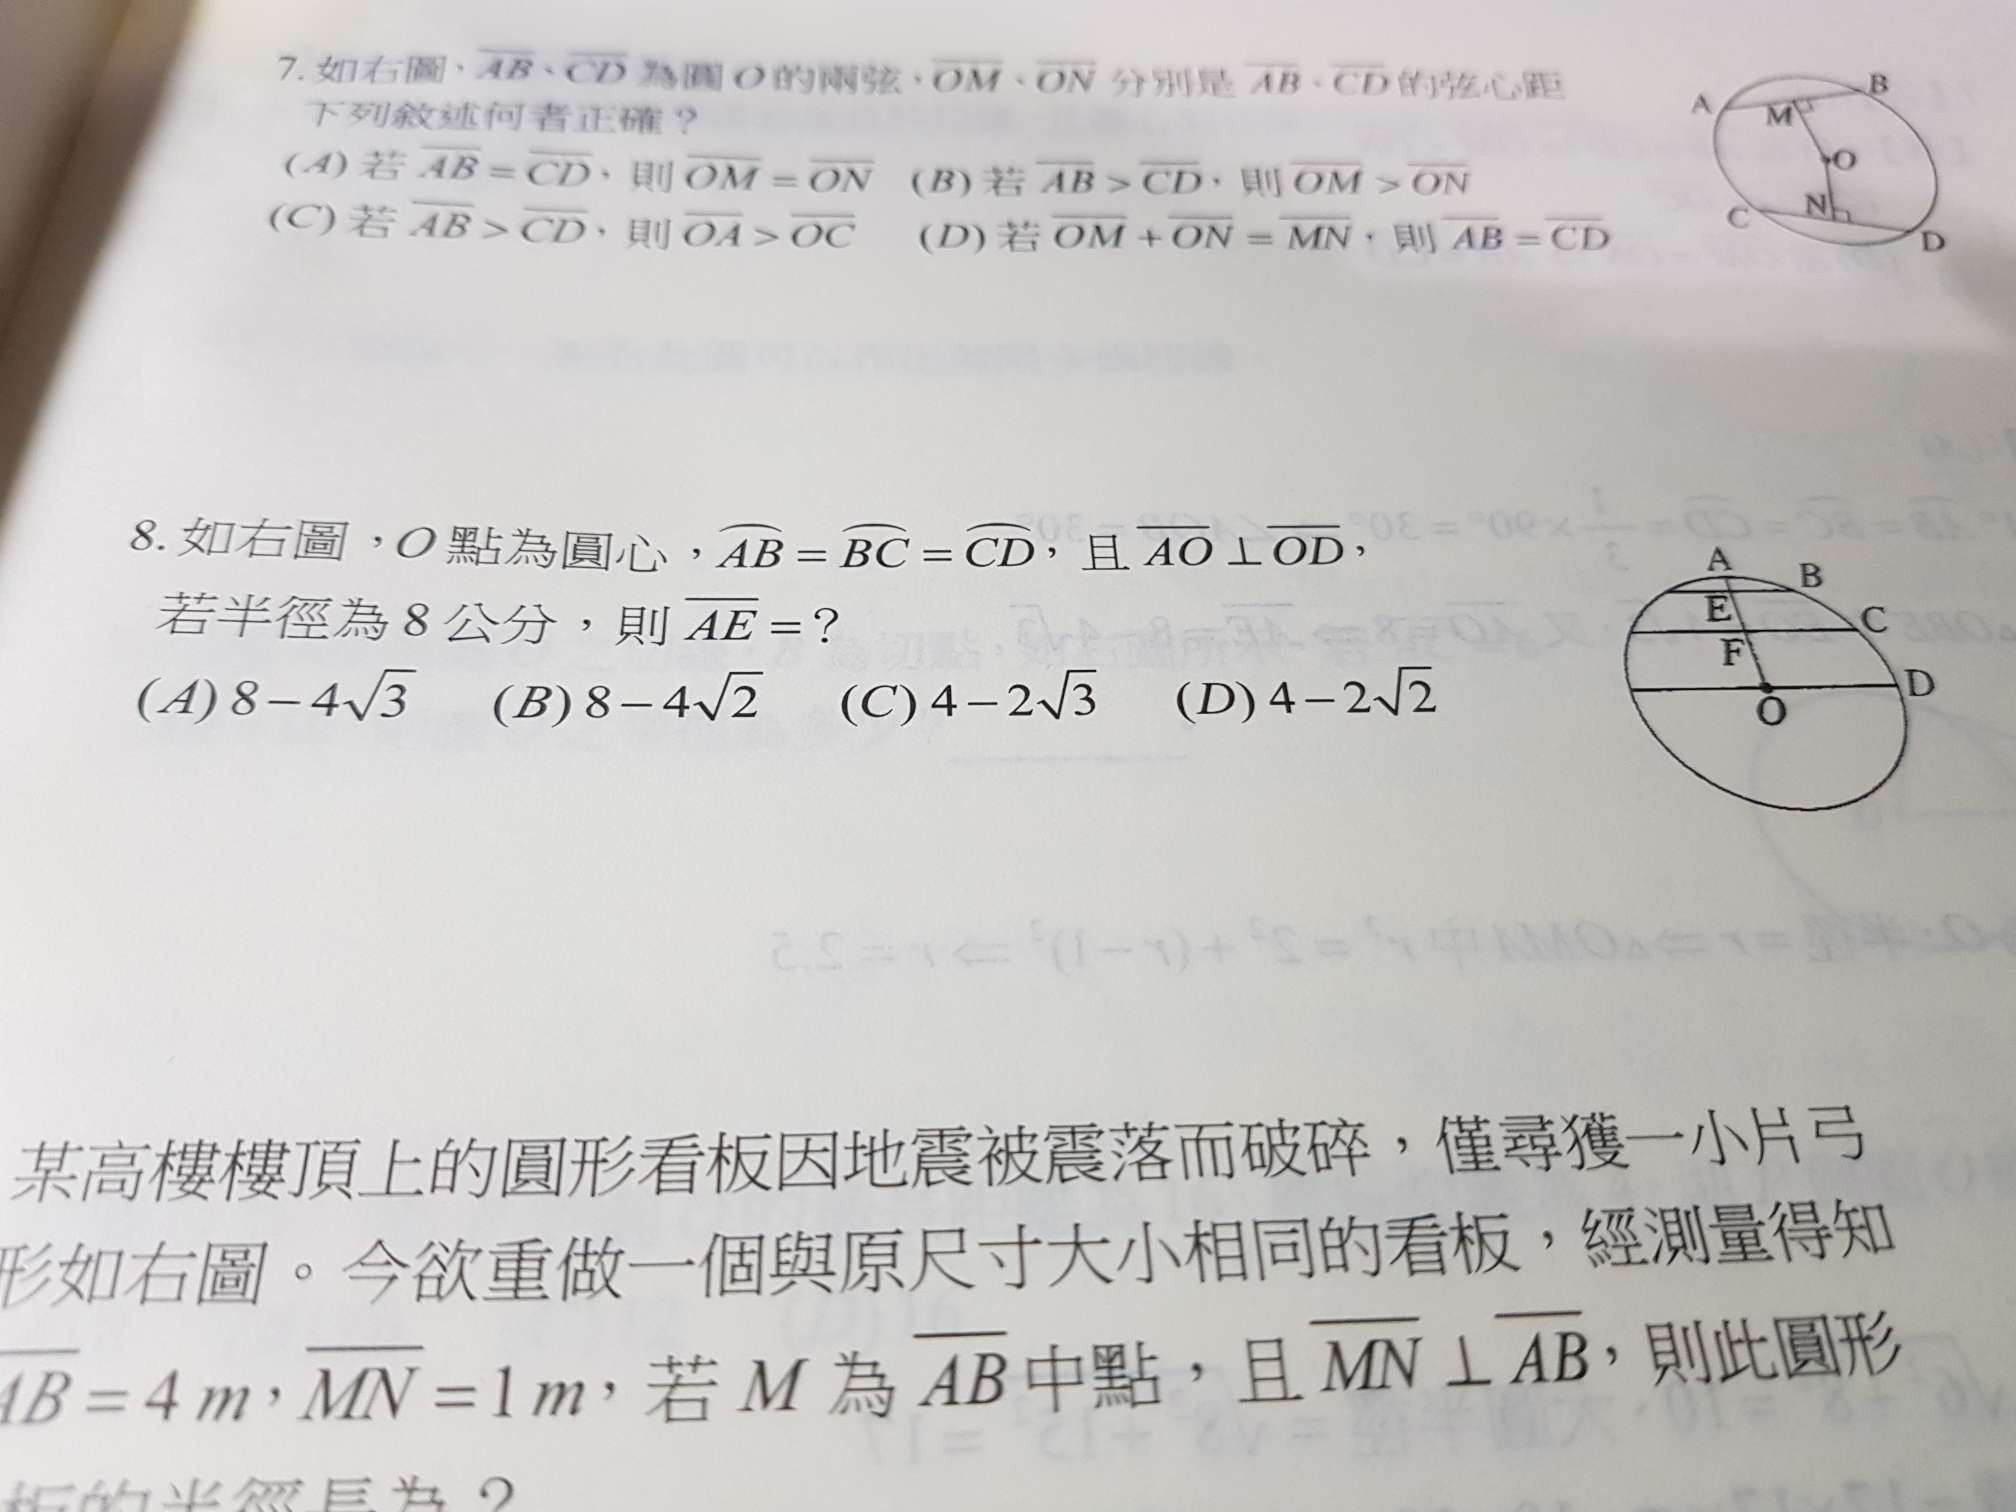 7. 如右圖、AB、CD 為圓 O 的兩弦,OM、ON 分別是 AB、CD 的弦心距
下列敘述何者正確?
(A) 若 AB = CD, 則 OM = ON (B) 若 AB > CD, 則 OM > ON
(C) 若 AB > CD, 則 OA > OC (D) 若 OM + ON = MN, 則 AB = CD
A
B
M
O
N
C
D
8. 如右圖,O 點為圓心,AB = BC = CD, 且 AO ⊥ OD,
若半徑為 8 公分,則 AE = ?
(A) 8 – 4√3 (B) 8 – 4√2 (C) 4 – 2√3 (D) 4 – 2√2
A
B
E
C
F
D
O
某高樓樓頂上的圓形看板因地震被震落而破碎,僅尋獲一小片弓
形如右圖。今欲重做一個與原尺寸大小相同的看板,經測量得知
AB = 4 m, MN = 1 m, 若 M 為 AB 中點,且 MN ⊥ AB, 則此圓形
板的半徑長為?